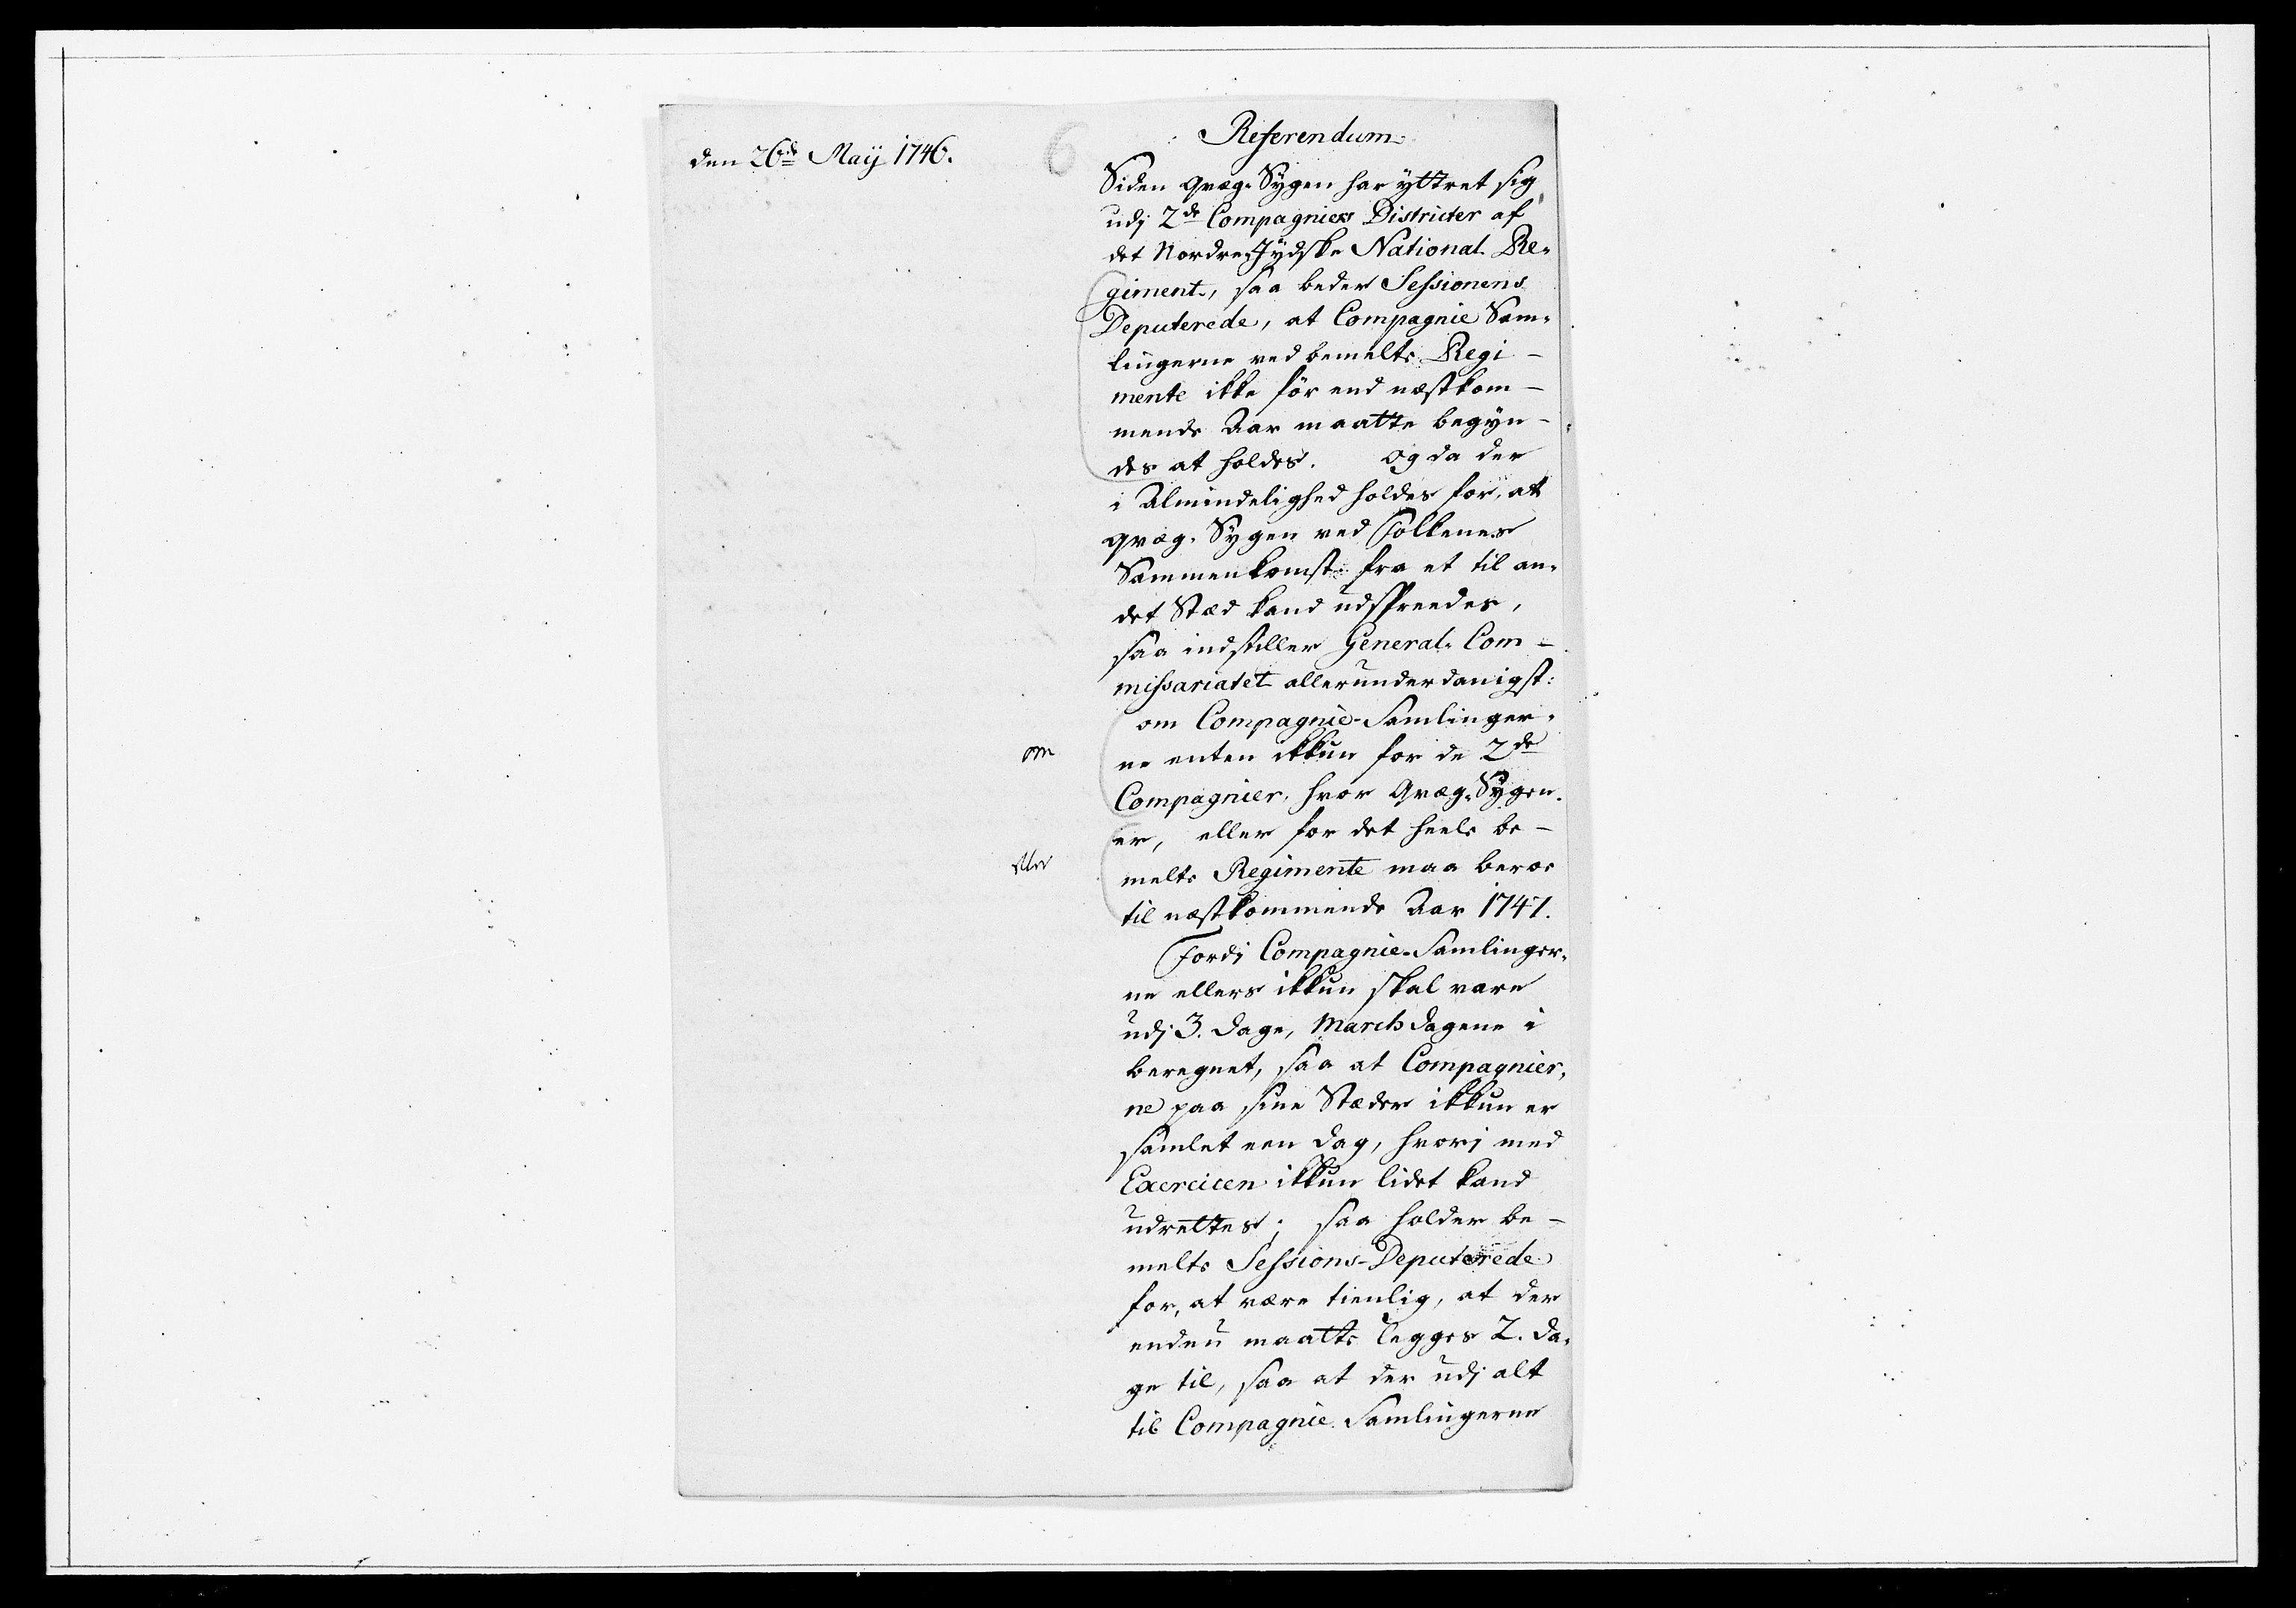 Referendum
den 26de Maij 1746.
6
Siden Qvæg-Sygen har yttret sig
udj 2de Compagniers Districter af
det Nordre Jydske National-Re-
giment, saa beder Sessionens
Deputerede, at Compagnie Sam-
lingerne ved bemelte Regi-
mente ikke för end nestkom-
mende Aar maatte begyn-
des at holdes. Og da der
i Almindelighed holdes for, at
qvæg-Sygen ved Folkenes
Sammenkomst fra et til an-
det Stæd kand udspreedes,
saa indstiller General-Com-
missariatet allerunderdanigst:
om Compagnie-Samlinger-
om
ne enten ikkun for de 2de
Compagnier, hvor Qvæg-Sygen
er, eller for det heele be-
eller
melte Regimente maa beroe
til nestkommende Aar 1747.
Fordj Compagnie-Samlinger-
ne ellers ikkun skal vare
udj 3. Dage, March dagene i
beregnet, saa at Compagnier-
ne paa sine Stæder ikkun er
samlet een Dag, hvorj med
Exercicen ikkun lidet kand
udrettes; saa holder be-
melte Sessions-Deputerede
for, at være tienlig, at der
endnu maatte legges 2. Da-
ge til, saa at der udj alt
til Compagnie Samlingerne